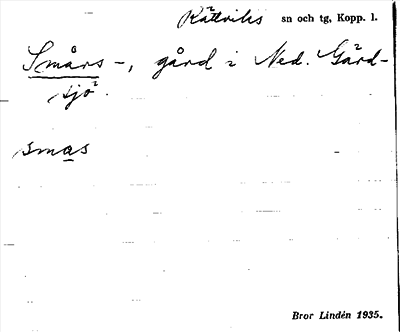 Rättviks sn och tg, Kopp. l.
Smårs -, gård i Ned. Gärd-
sjö.
smas
Bror Lindén 1935.